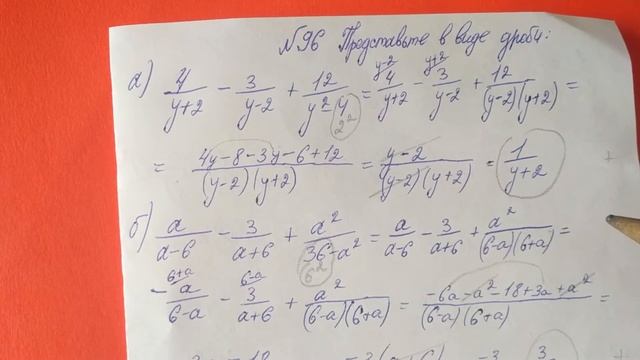 №96 Представьте в виде дроби:
а) 4/(y+2) - 3/(y-2) + 12/(y²-4) = y-2 4/(y+2) - y+2 3/(y-2) + 12/((y-2)(y+2)) =
2²
= (4y-8-3y-6+12)/((y-2)(y+2)) = (y-2)/((y-2)(y+2)) = 1/(y+2)
б) a/(a-6) - 3/(a+6) + a²/(36-a²) = a/(a-6) - 3/(a+6) + a²/((6-a)(6+a)) =
6²
- 6+a a/(6-a) - 6-a 3/(a+6) + a²/((6-a)(6+a)) = (-6a-a²-18+3a+a²)/((6-a)(6+a)) =